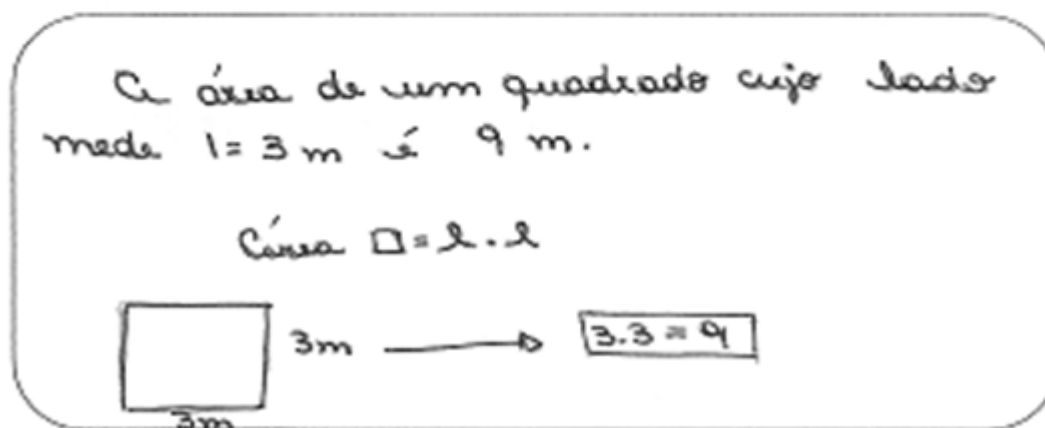 A área de um quadrado cujo lado
mede l = 3 m é 9 m.
Área □ = l . l
3m
3.3 = 9
3m